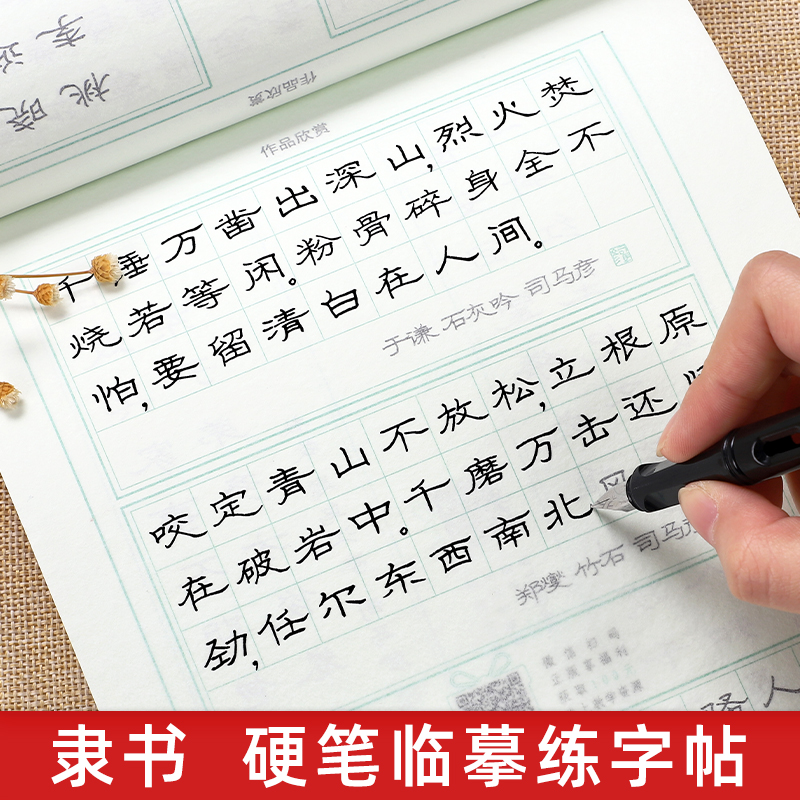 作品欣赏
作品欣赏
千锤万凿出深山,烈火焚
烧若等闲。粉骨碎身全不
怕,要留清白在人间。
于谦 石灰吟 司马彦
咬定青山不放松,立根原
在破岩中。千磨万击还
劲,任尔东西南北
郑燮 竹石 司马彦
微信扫码
路人
隶书 硬笔临摹练字帖